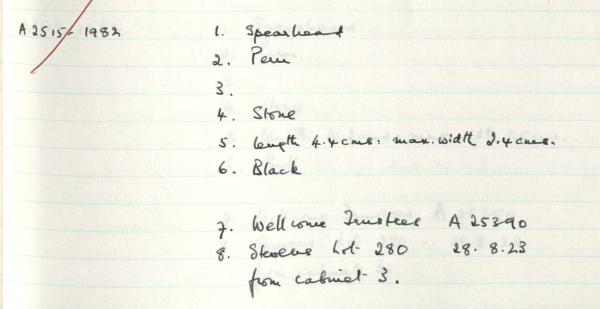 A 2515-1982 1. Spearhead
2. Peru
3.
4. Stone
5. length 4.4cms: max. width 2.4cms.
6. Black
7. Wellcome Trustees A 25390
8. Stevens Lot 280 28.8.23
from cabinet 3.